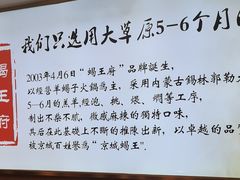 我们只选用大草原5-6个月
蝎王府
2003年4月6日"蝎王府"品牌誕生，
以經營羊蝎子火鍋爲主，采用内蒙古錫林郭勒
5—6月的羔羊經泡、挑、煨、燜等工序，
制出不柴不膩，微咸麻辣的獨特口味，
其后在此基礎上不斷的推陳出新，以卓越的品
被京城百姓譽爲"京城蝎王"。